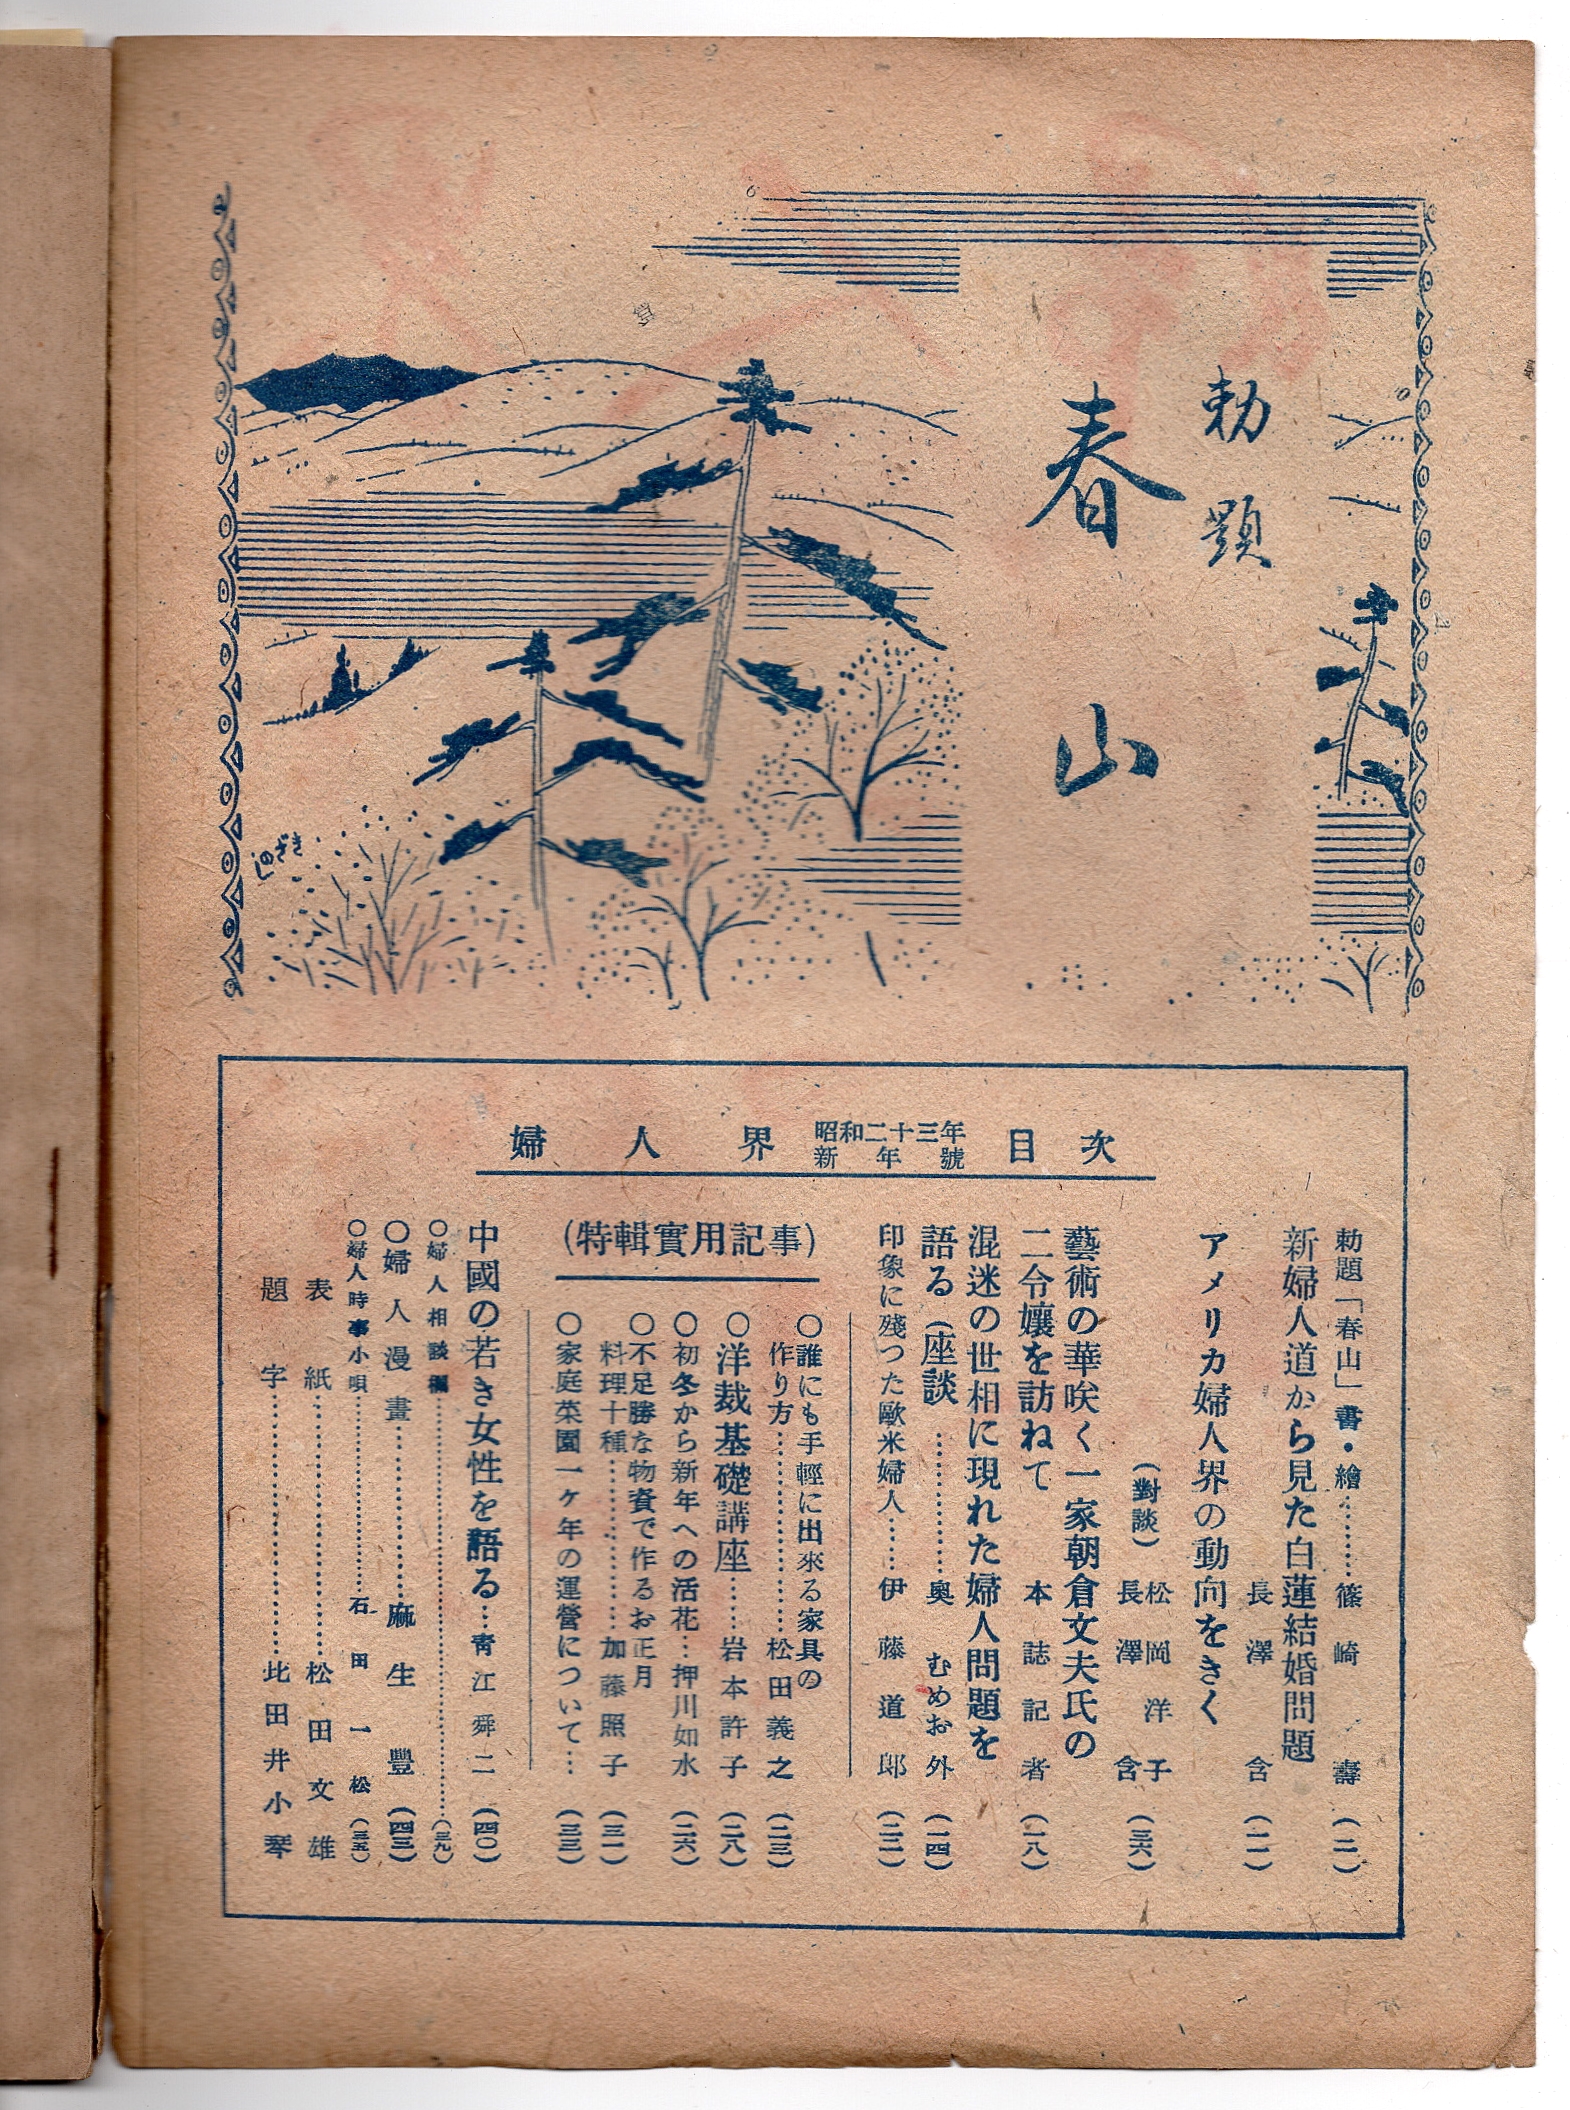 勅題
春山
しのざき
婦人界 昭和二十三年 新年號 目次
勅題「春山」書・繪………篠崎 壽(二)
新婦人道から見た白蓮結婚問題
長澤 含(一一)
アメリカ婦人界の動向をきく
(對談)松岡洋子
長澤 含(三六)
藝術の華咲く一家朝倉文夫氏の
二令孃を訪ねて 本誌記者(一八)
混迷の世相に現れた婦人問題を
語る(座談)…………奧 むめお外(一四)
印象に殘つた歐米婦人……伊藤道郎(二二)
(特輯實用記事)
○誰にも手輕に出來る家具の
作り方…………松田義之(二三)
○洋裁基礎講座……岩本許子(二八)
○初冬から新年への活花…押川如水(二六)
○不足勝な物資で作るお正月
料理十種…………加藤照子(三一)
○家庭菜園一ケ年の運營について…(三三)
中國の若き女性を語る…靑江舜二(四〇)
○婦人相談欄…………(三九)
○婦人漫畫…………麻生 豐(四三)
○婦人時事小唄…………石田一松(三五)
表紙…………松田文雄
題字…………比田井小琴